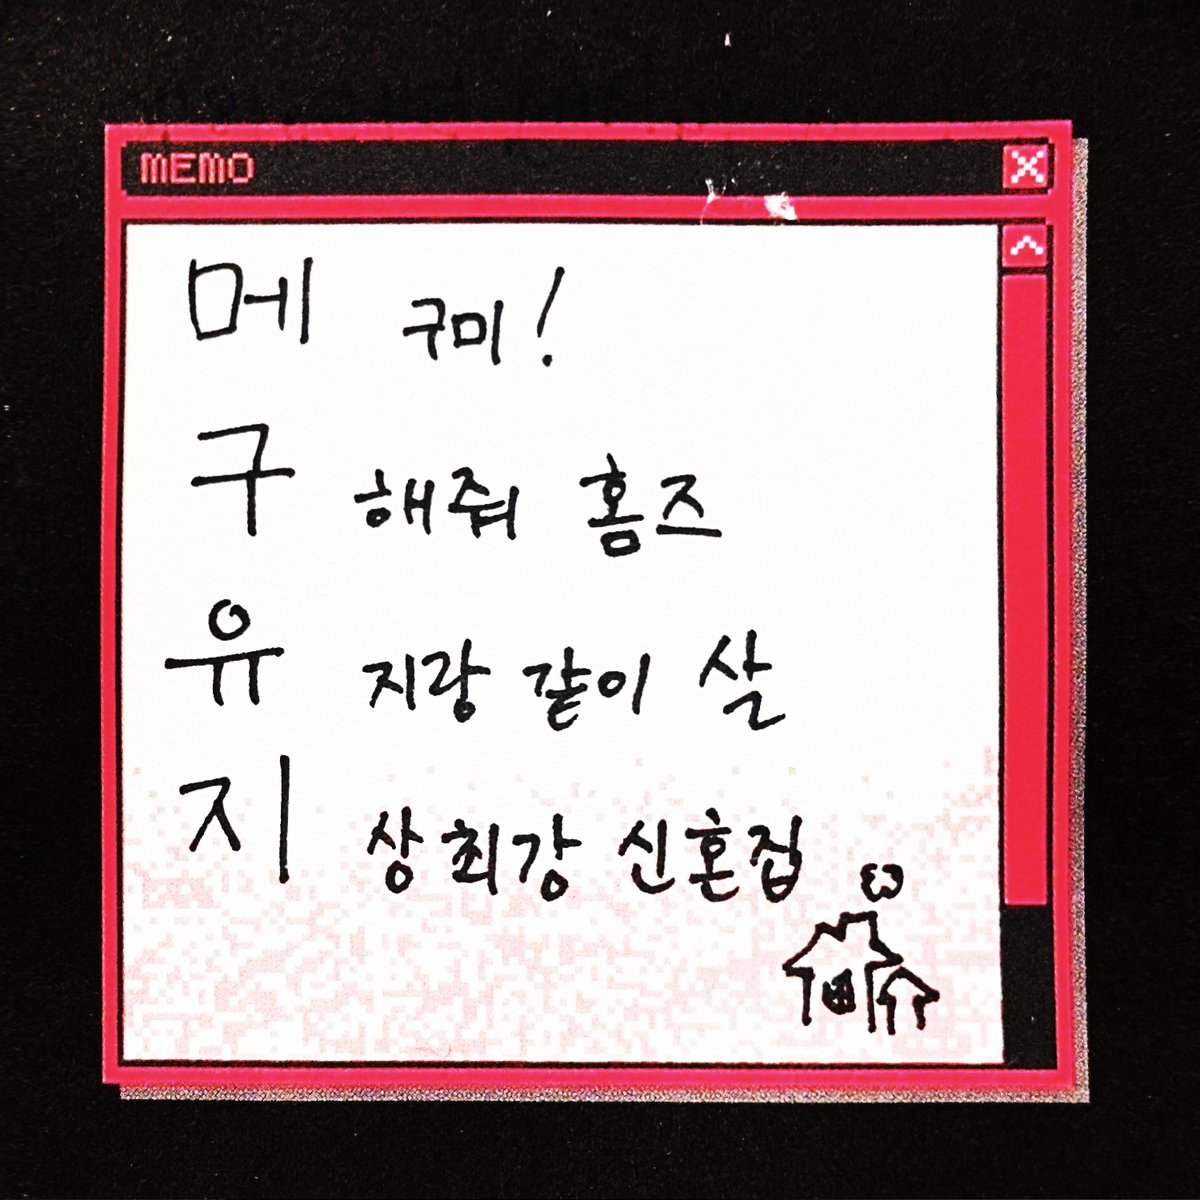 MEMO
메 구미!
구 해줘 홈즈
유 지랑 같이 살
지 상최강 신혼집